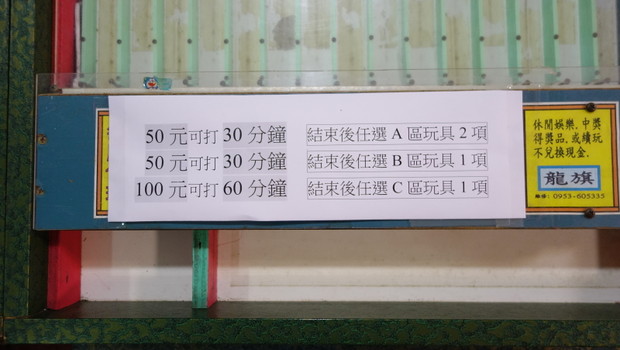 50 元可打 30 分鐘 結束後任選 A 區玩具 2 項
50 元可打 30 分鐘 結束後任選 B 區玩具 1 項
100 元可打 60 分鐘 結束後任選 C 區玩具 1 項
休閒娛樂,中獎
得獎品,或續玩
不兌換現金.
龍旗
0953-605335